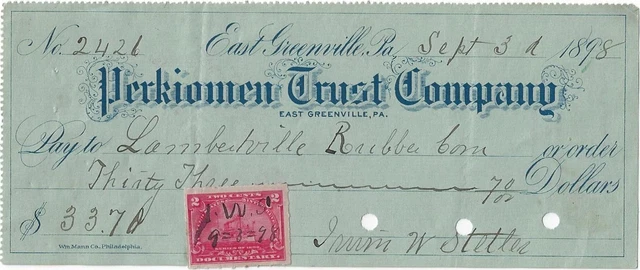 No. 2421 East Greenville, Pa. Sept 3d 1898
Perkiomen Trust Company
EAST GREENVILLE, PA.
Pay to Lambertville Rubber Com or order
Thirty Three 70/100 Dollars
$ 33.70
2 TWO CENTS 2
W.S.
9-3-98
DOCUMENTARY
Wm. Mann Co., Philadelphia.
Irwin W Stetler